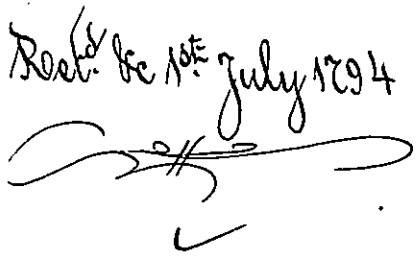 Rec.d &c 1st July 1794